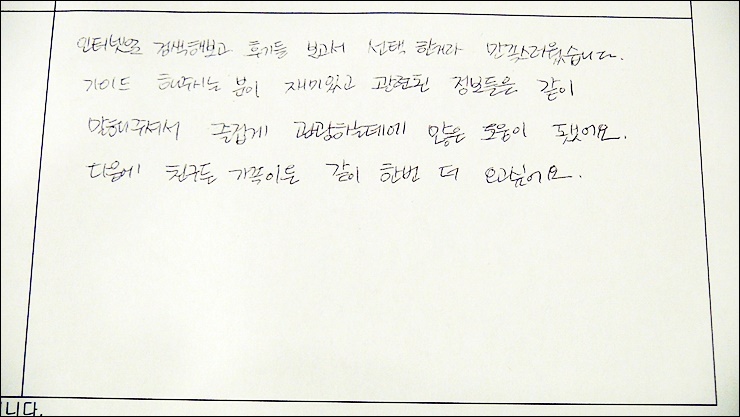 인터넷을 검색해보고 후기들 보고서 선택 한거라 만족스러웠습니다.
가이드 해주시는 분이 재미있고 관련된 정보들을 같이
말해주셔서 즐겁게 관광하는데에 많은 도움이 됐어요.
다음에 친구든 가족이든 같이 한번 더 오고싶어요.
니다.